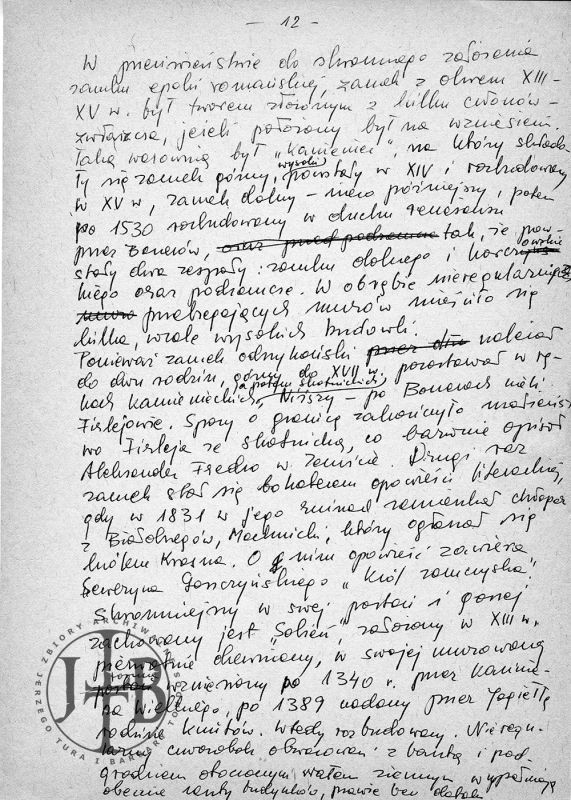 - 12 -
W przeciwieństwie do skromnego założenia
zamku epoki romańskiej, zamek z okresu XIII -
XV w. był tworem złożonym z kilku członów -
zwłaszcza, jeżeli położony był na wzniesieniu.
Taką warownią był "Kamieniec", na który składa-
ły się zamek górny, wysoki powstały w XIV i rozbudowany
w XV w, zamek dolny - nieco późniejszy, potem
po 1530 rozbudowany w duchu renesansu
przez Bonerów, oraz przed podzamcze tak, że pow-
stały dwa zespoły: zamku dolnego i
kiego oraz podzamcze. W obrębie nieregularnie
przebiegających murów mieściło się
kilka, wcale wysokich budowli.
Ponieważ zamek odrzykoński należał
do dwu rodzin, górny do XVII w. pozostawał w rę-
kach Kamienieckich, a potem Skotnickich, Niższy - po Bonerach mieli
Firlejowie. Spory o granicę zakończyło małżeńst-
wo Firleja ze Skotnicką, co barwnie opisał
Aleksander Fredro w Zemście. Drugi raz
zamek stał się bohaterem opowieści literackiej,
gdy w 1831 w jego ruinach zamieszkał chłopak
z Białobrzegów, Machnicki, który ogłaszał się
królem Krosna. O nim opowieść zawiera
Seweryna Goszczyńskiego "Król zamczyska".
Skromniejszy w swej postaci i gorzej
zachowany jest "Sobień", założony w XIII w.
pierwotnie drewniany, w swojej murowanej
postaci formie wzniesiony po 1340 r. przez Kazimie-
rza Wielkiego, po 1389 nadany przez Jagiełłę
rodzinie Kmitów. Wtedy rozbudowany. Nieregu-
larny czworobok obwarowań z basztą i pod-
grodziem otoczonym wałem ziemnym wypełniają
obecnie resztki budynków, prawie bez
JERZEGO TURA I BARBARY TO
ZBIORY ARCHIWALNE
JTB